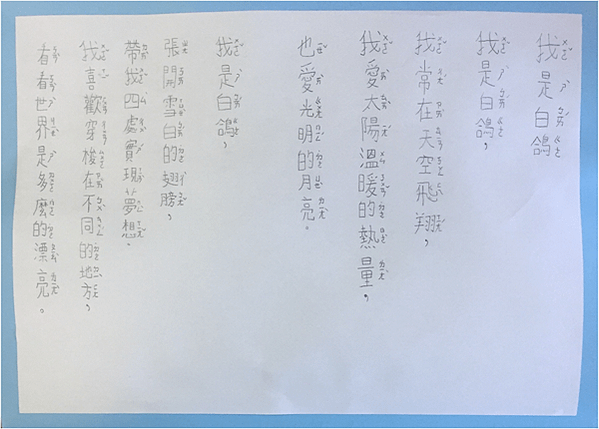 我是白鴿
我是白鴿，
我常在天空飛翔，
我愛太陽溫暖的熱量，
也愛光明的月亮。
我是白鴿，
張開雪白的翅膀，
帶我四處實現夢想。
我喜歡穿梭在不同的地方，
看看世界是多麼的漂亮。